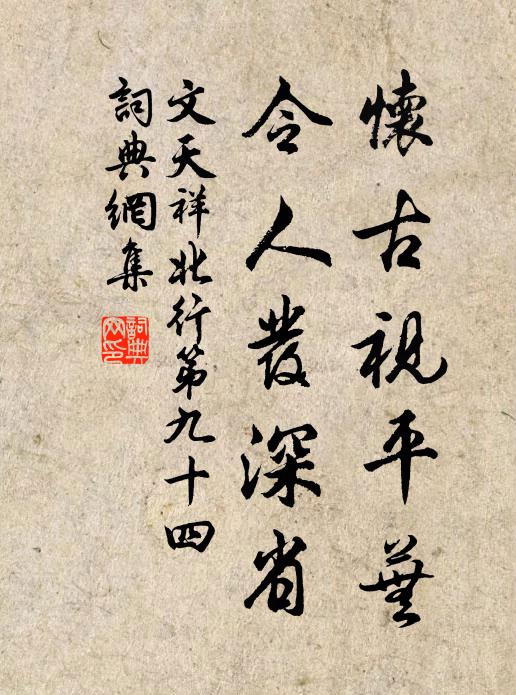 懷古視平蕪
令人發深省
文天祥北行第九十四
詞典網集
詞典網印